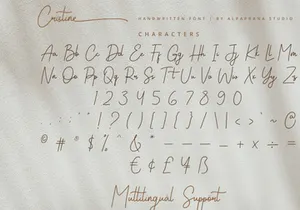 Cristine
HANDWRITTEN FONT / BY ALPAPRANA STUDIO
CHARACTERS
Aa Bb Cc Dd Ee Ff Gg Hh Ii Jj Kk Ll Mm
Nn Oo Pp Qq Rr Ss Tt Uu Vv Ww Xx Yy Zz
1 2 3 4 5 6 7 8 9 0
! ? ( ) [ ] { } / \ | < > ~ @
© # * $ % ^ & ° - – — _ + × ÷ =
€ ¢ £ ¥ ß
Multilingual Support